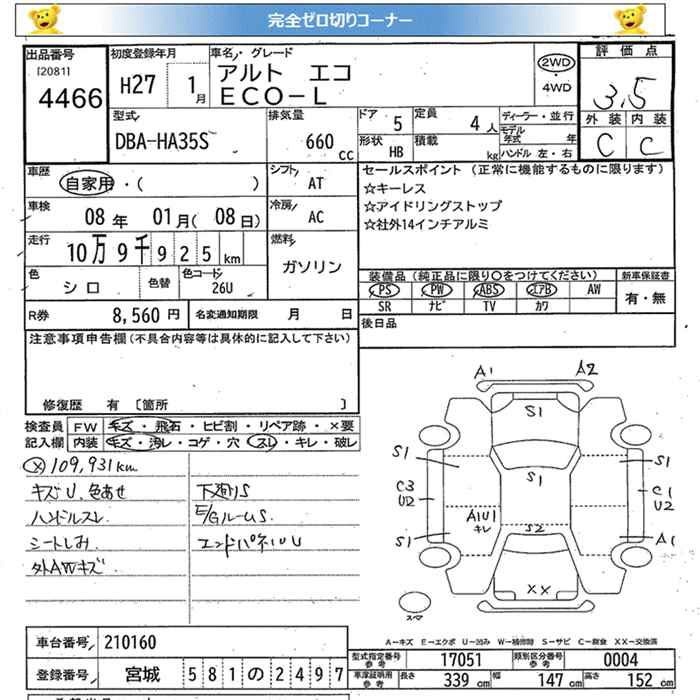 完全ゼロ切りコーナー
出品番号
[2081]
4466
初度登録年月
H27 1月
車名・グレード
アルト エコ
ECO-L
2WD
・
4WD
評価点
3.5
外装 内装
C C
型式
DBA-HA35S
排気量
660 cc
ドア 5
定員 4人
形状 HB
積載 kg
ディーラー・並行
モデル年式 年
ハンドル 左・右
車歴
自家用・( )
シフト
AT
車検
08年 01月(08日)
冷房
AC
走行
10万9千925km
燃料
ガソリン
色
シロ
色替
色コード
26U
セールスポイント (正常に機能するものに限ります)
☆キーレス
☆アイドリングストップ
☆社外14インチアルミ
装備品(純正品に限り○をつけてください)
新車保証書
PS PW ABS エアB AW
有・無
SR ナビ TV カワ
R券 8,560円
名変通知期限 月 日
後日品
注意事項申告欄(不具合内容等は具体的に記入して下さい)
修復歴 有 〔箇所 〕
検査員 FW キズ・飛石・ヒビ割・リペア跡・×要
記入欄 内装 キズ・汚レ・コゲ・穴・スレ・キレ・破レ
× 109,931km
キズU、色あせ 下廻りS
ハンドルスレ E/GルームS
シートしみ エンドパネルU
外AWキズ
A1 A2
S1
S1 S1
S1
C3
U2
C1
U2
A1U1
キレ
S1 S2 A1
XX
スペア
A-キズ E-エクボ U-凹み W-補修跡 S-サビ C-腐食 XX-交換済
車台番号 210160
登録番号 宮城 581の2497
型式指定番号
参考
17051
類別区分番号
参考
0004
車庫証明用
参考
長さ 339cm 幅 147cm 高さ 152cm